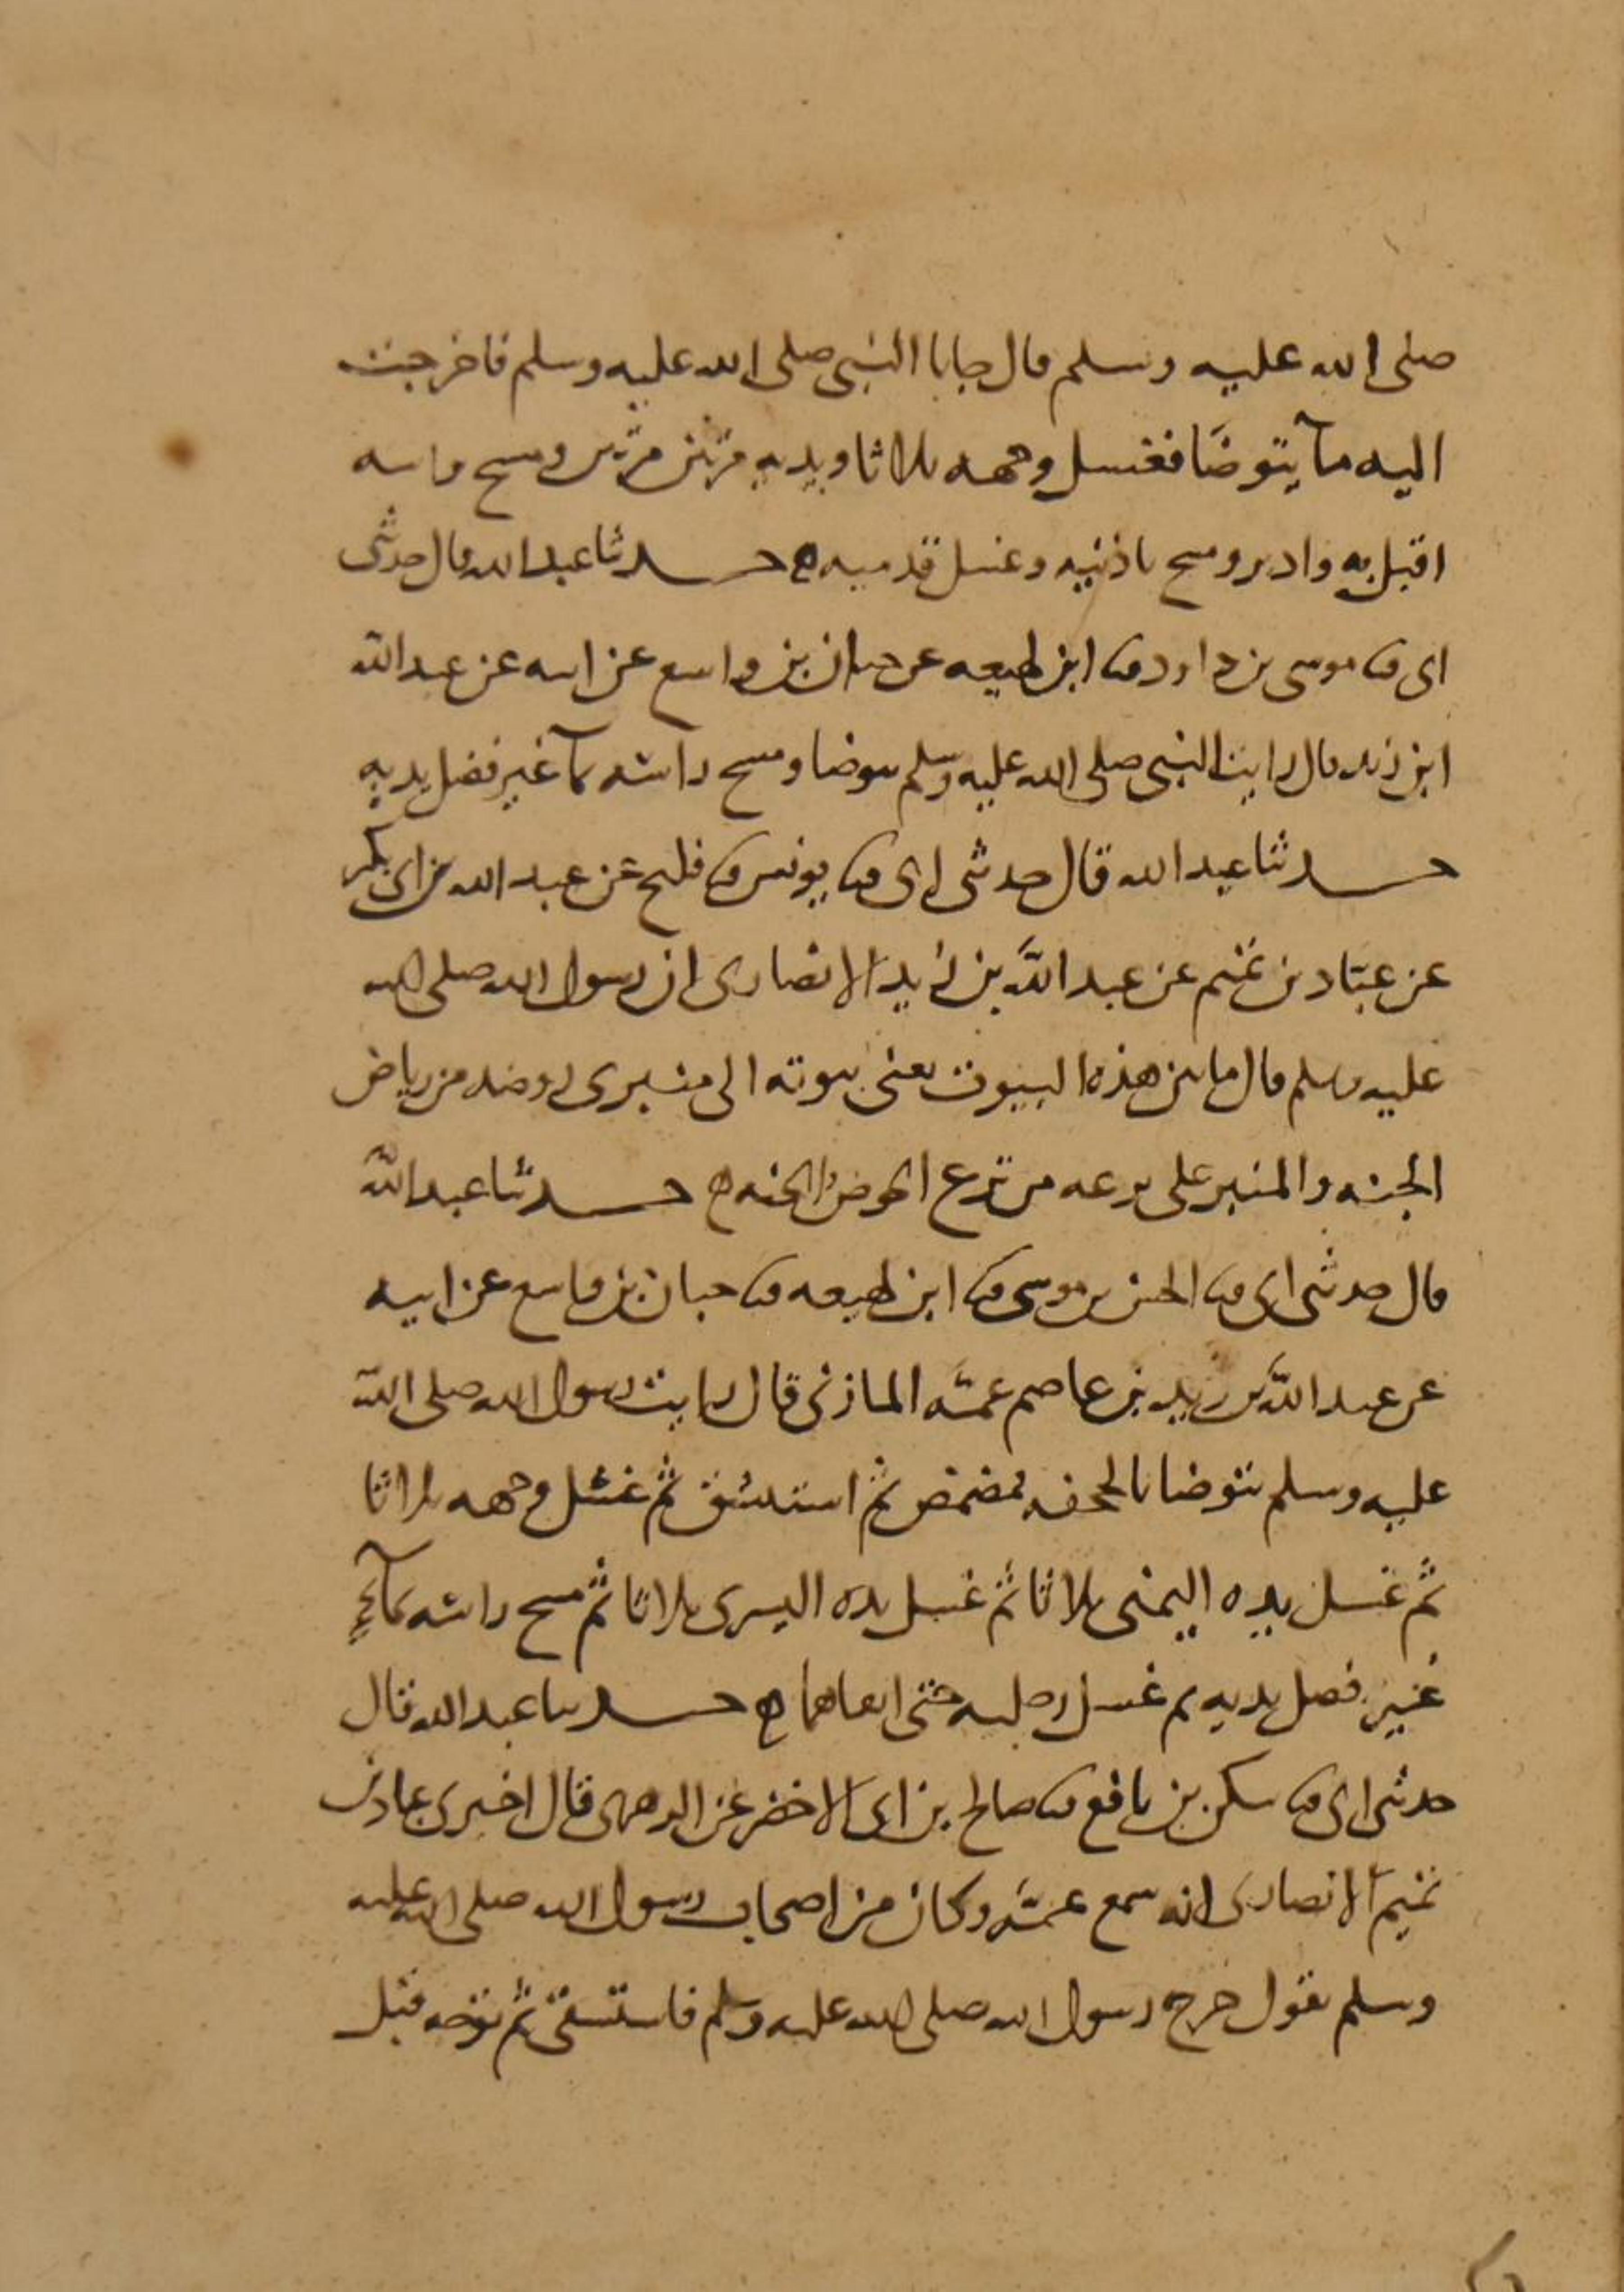 صلى الله عليه وسلم قال جاانا النبي صلى الله عليه وسلم فاخرجت
اليه مآ يتوضا فغسل وجهه ثلاثا ويديه مرتين مرتين ومسح راسه
اقبل به وادبر ومسح باذنيه وغسل قدميه ه حدثنا عبد الله قال حدثني
ابي ثنا موسى بن داود ثنا ابن لهيعه عن حبان بن واسع عن ابيه عن عبد الله
ابن زيد قال رايت النبي صلى الله عليه وسلم يتوضا ومسح راسه بمآ غير فضل يديه
حدثنا عبد الله قال حدثني ابي ثنا يونس ثنا فليح عن عبد الله بن ابي بكر
عن عبّاد بن تميم عن عبد الله بن زيد الانصاري ان رسول الله صلى الله
عليه وسلم قال ما بين هذه البيوت يعني بيوته الى منبري روضه من رياض
الجنه والمنبر على ترعه من ترع الجنه ه حدثنا عبد الله
قال حدثني ابي ثنا الحسن بن موسى ثنا ابن لهيعه ثنا حبان بن واسع عن ابيه
عن عبد الله بن زيد بن عاصم عمّه المازني قال رايت رسول الله صلى الله
عليه وسلم يتوضا بالجحفه فمضمض ثم استنشق ثم غسل وجهه ثلاثا
ثم غسل يده اليمنى ثلاثا ثم غسل يده اليسرى ثلاثا ثم مسح راسه بمآءٍ
غير فضل يديه ثم غسل رجليه حتى انقاهما ه حدثنا عبد الله قال
حدثني ابي ثنا سكن بن نافع ثنا صالح بن ابي الاخضر عن الزهري قال اخبرني عباد بن
تميم الانصاري انه سمع عمّه وكان من اصحاب رسول الله صلى الله عليه
وسلم يقول خرج رسول الله صلى الله عليه وسلم فاستسقى ثم توجه قبل